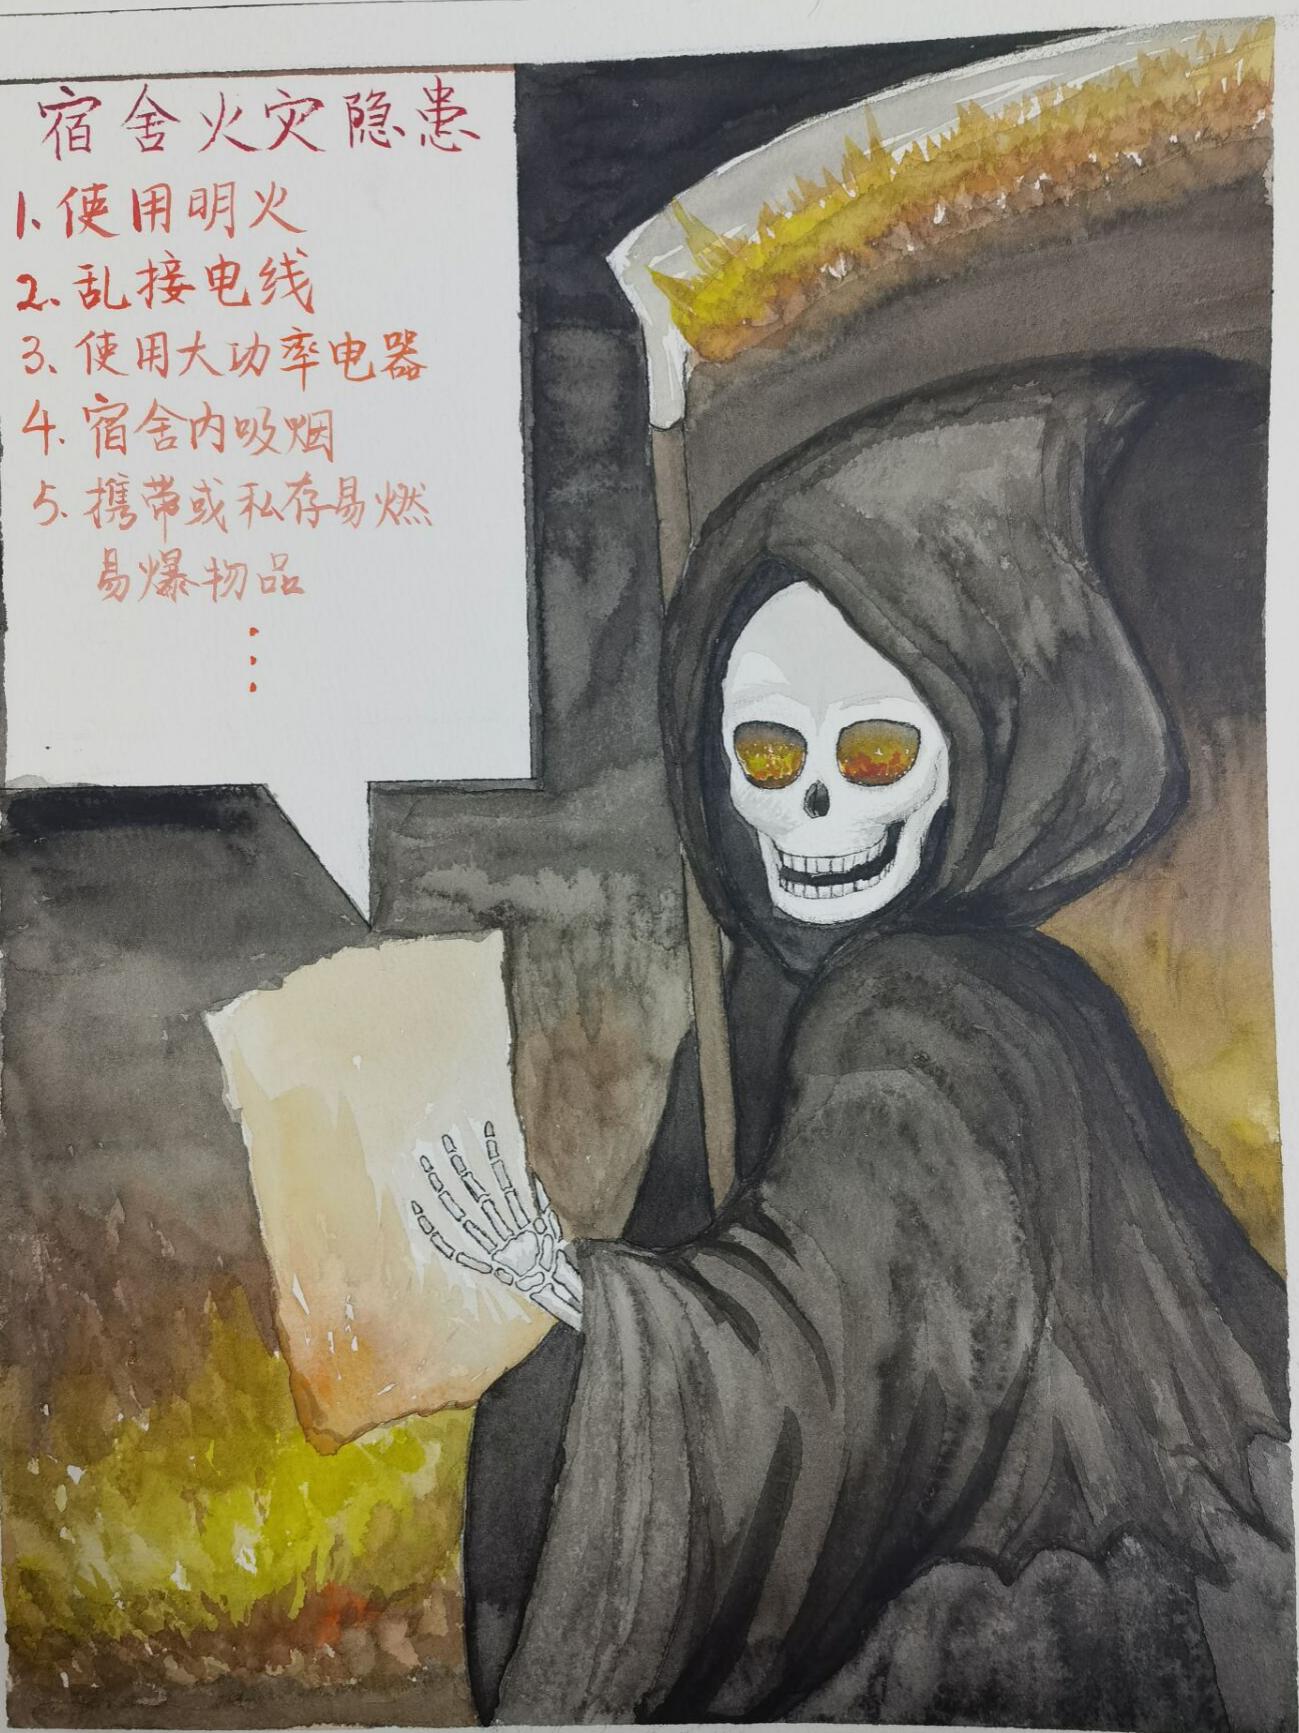 宿舍火灾隐患
1.使用明火
2.乱接电线
3.使用大功率电器
4.宿舍内吸烟
5.携带或私存易燃
易爆物品
⋮